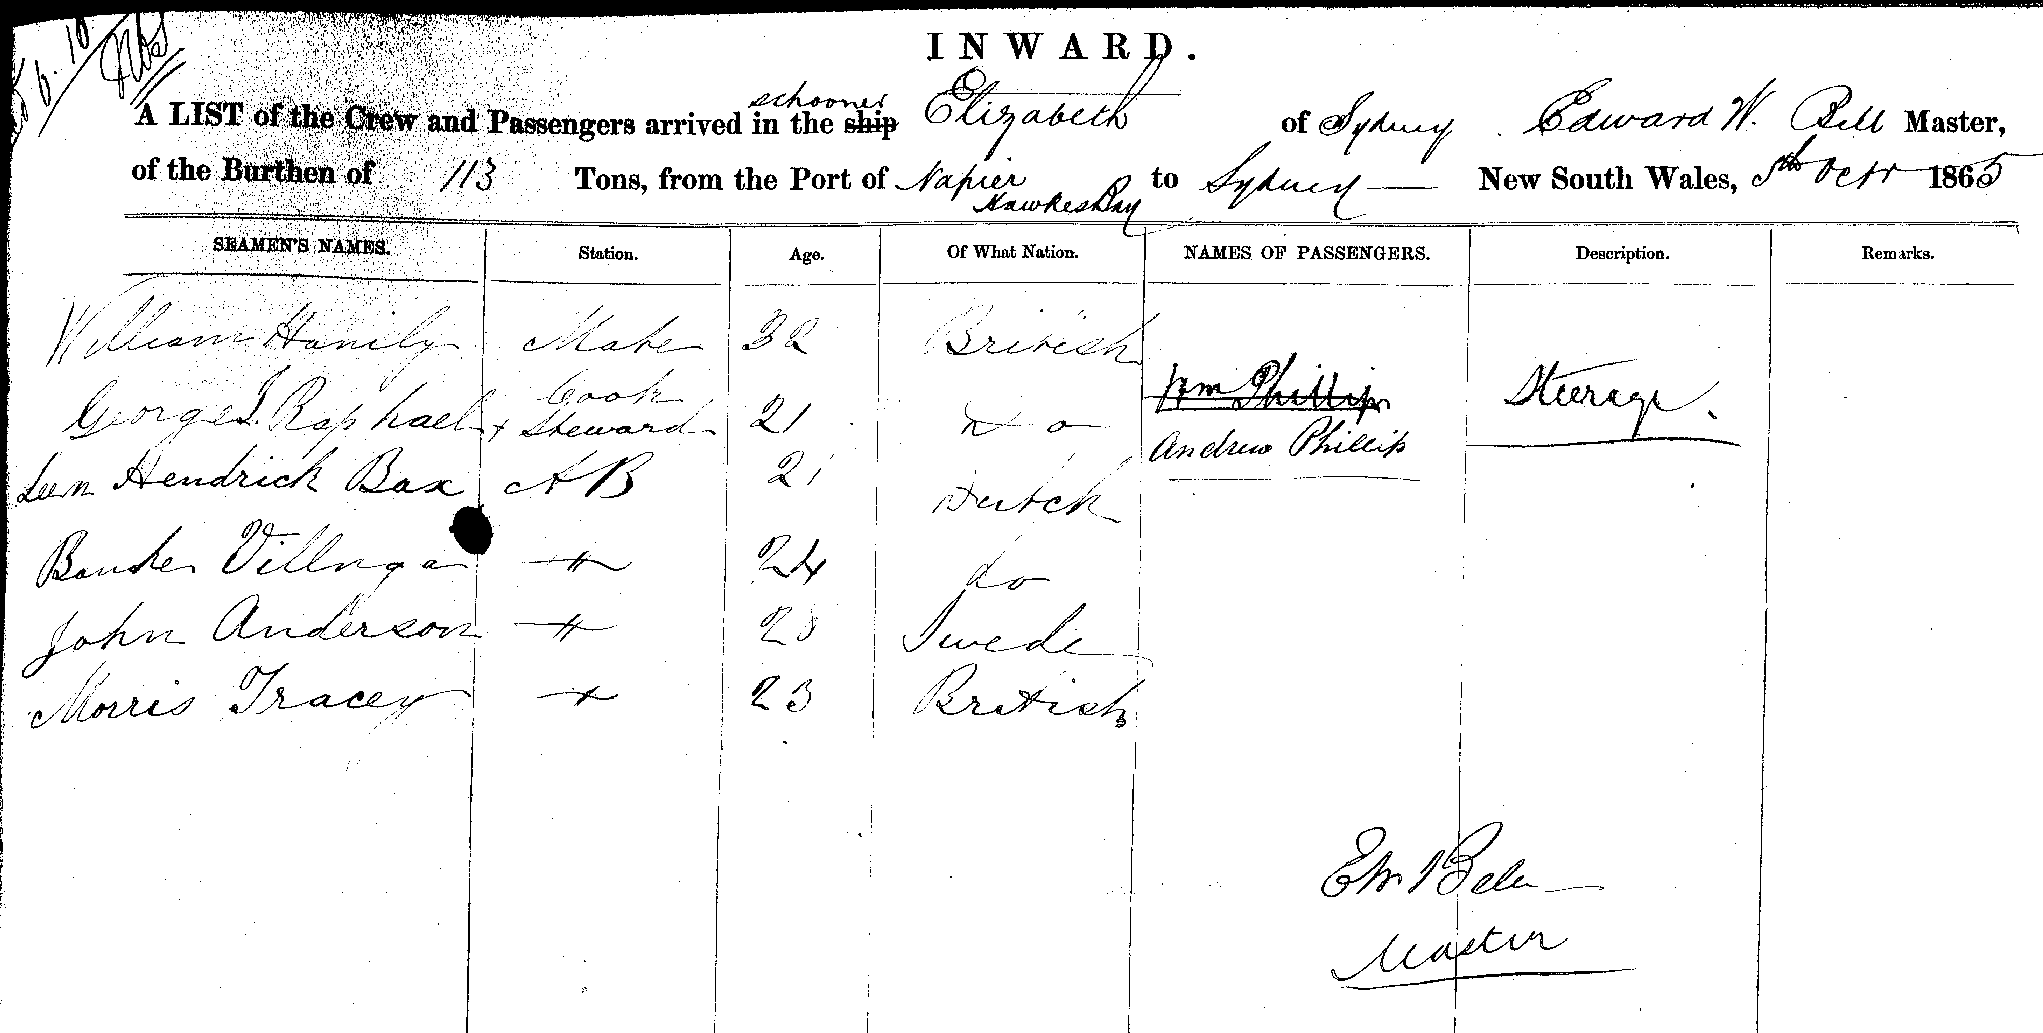 6.10
INWARD.
A LIST of the Crew and Passengers arrived in the ship schooner Elizabeth of Sydney Edward W. Bell Master,
of the Burthen of 113 Tons, from the Port of Napier Hawkes Bay to Sydney — New South Wales, 5th Octr 1865
SEAMEN'S NAMES. Station. Age. Of What Nation. NAMES OF PASSENGERS. Description. Remarks.
William Hanily Mate 32 British
George J. Raphael Cook + Steward 21 Do Wm Phillips Steerage.
Andrew Phillips
Hendrick Bax AB 21 Dutch
Villnga " 24 do
John Anderson " 28 Swede
Morris Tracey " 23 British
EW Bell
Master